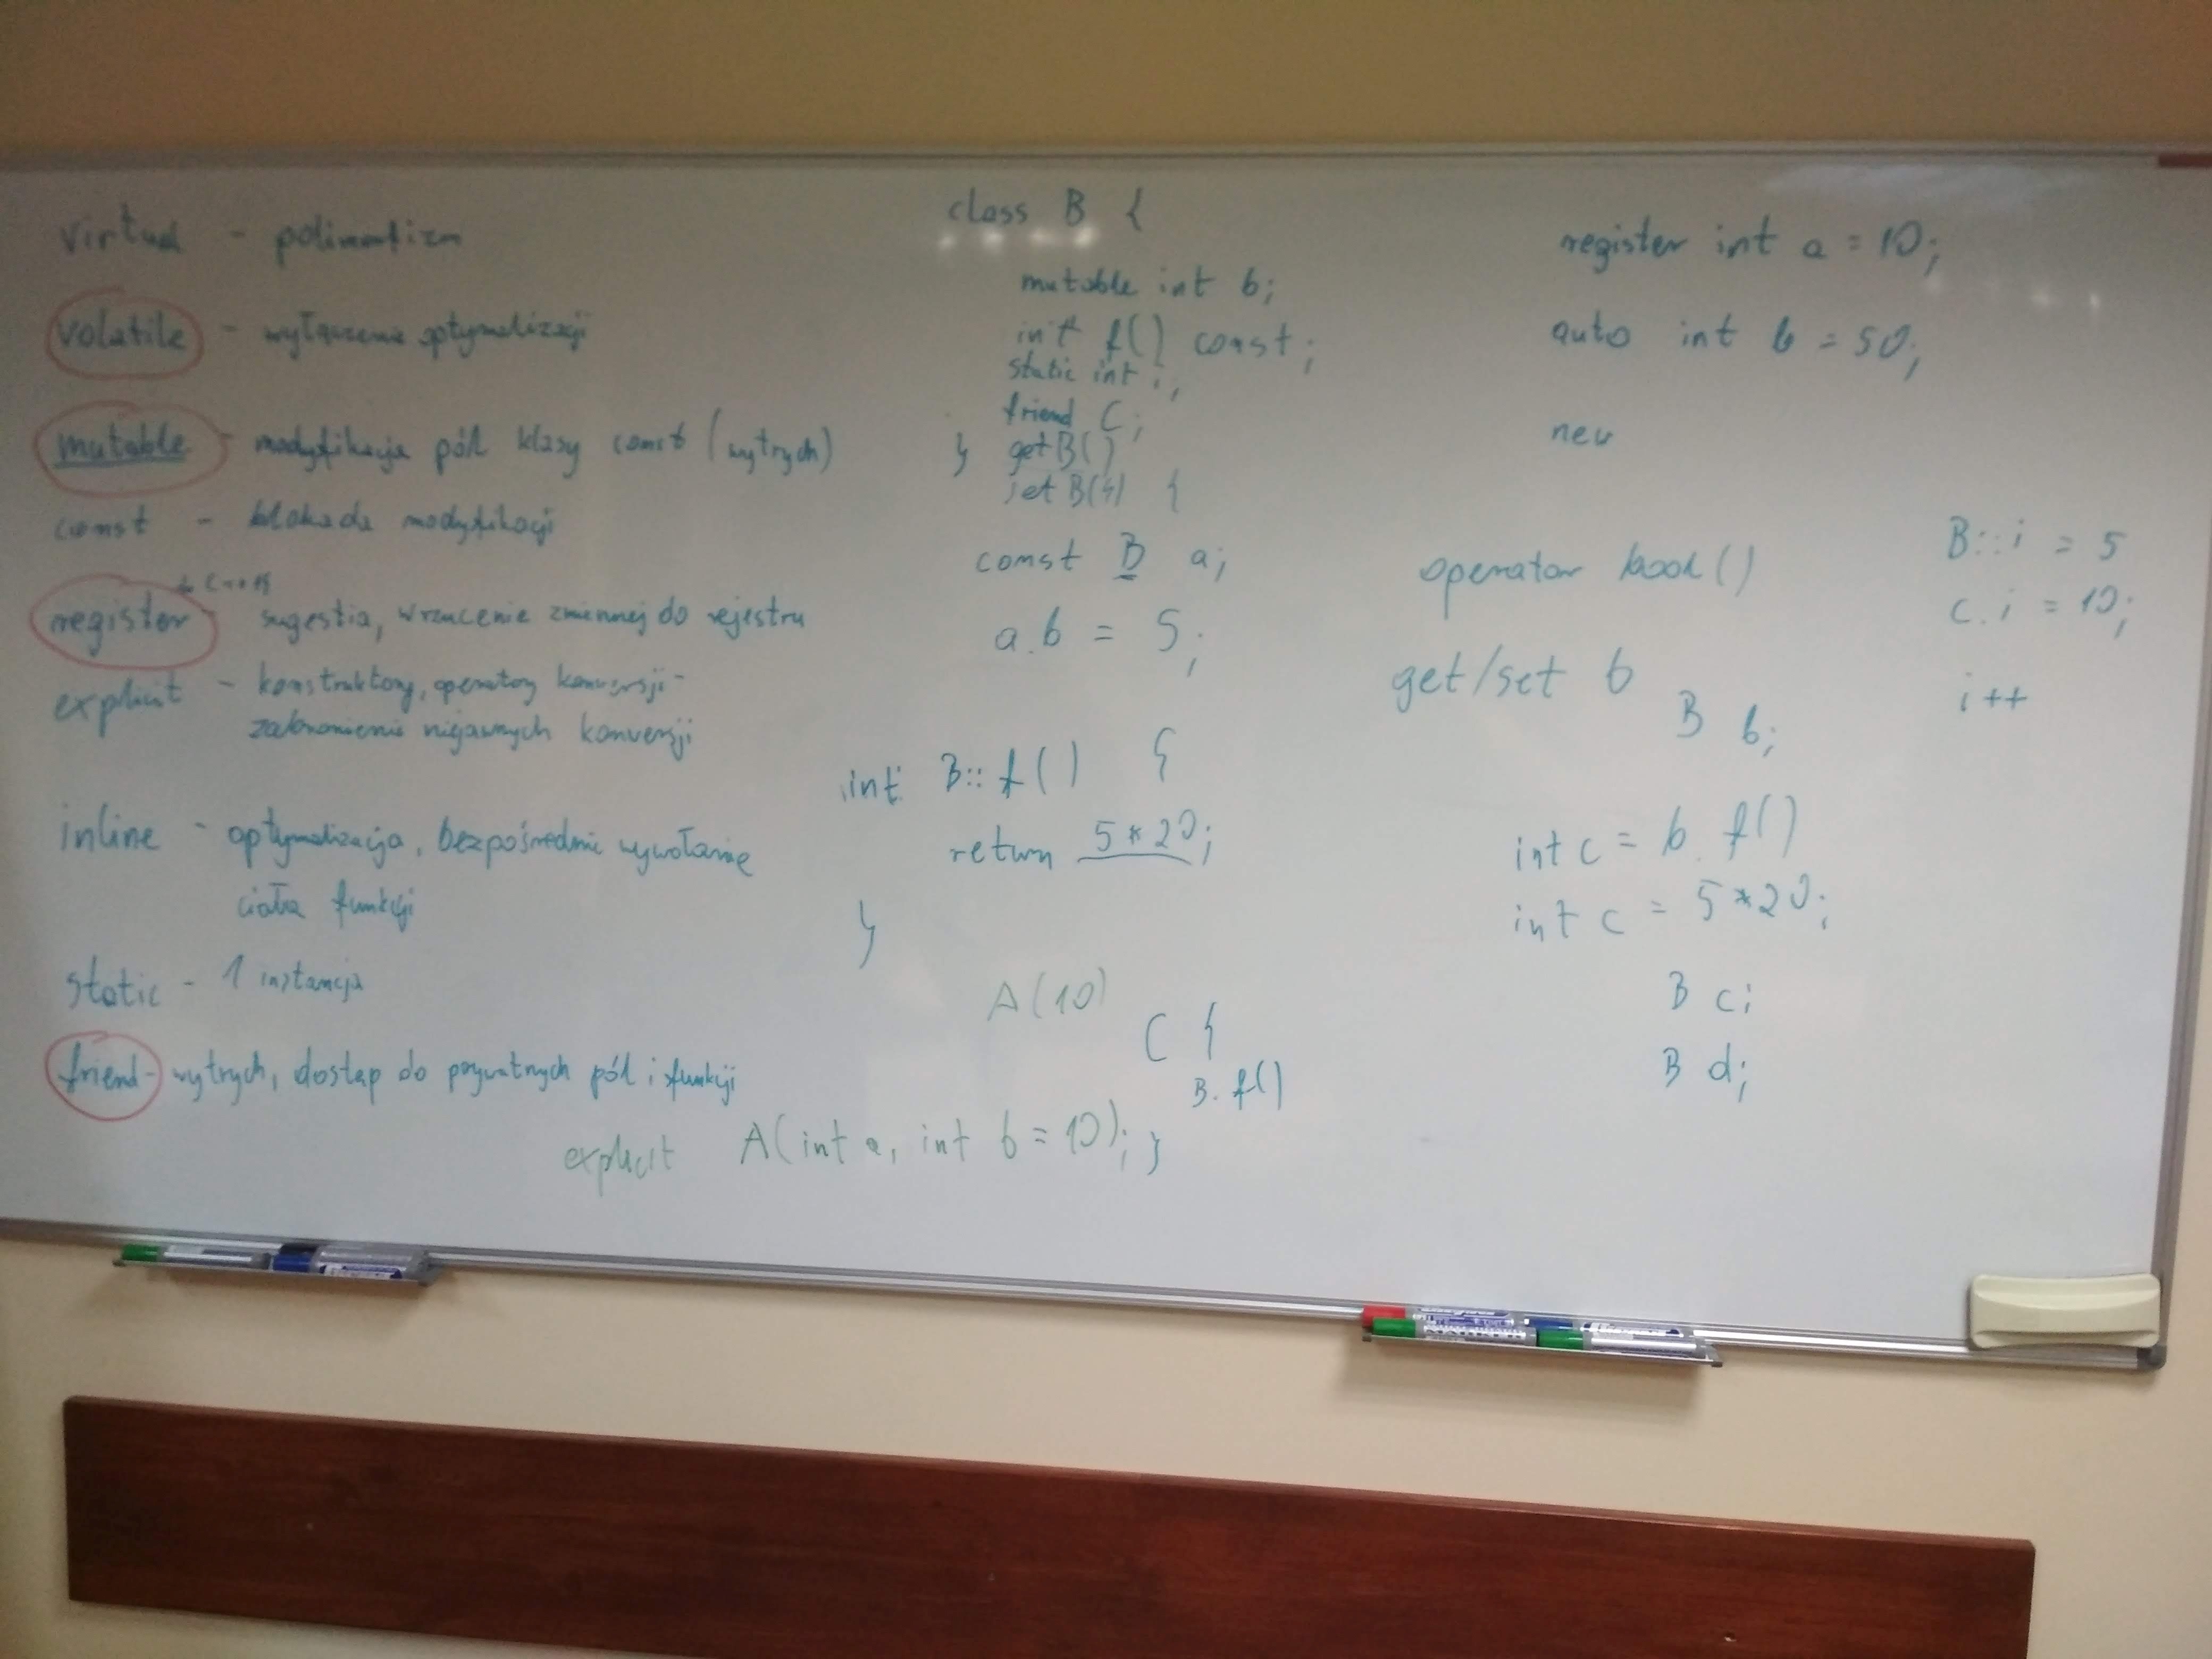 virtual - polimorfizm
volatile - wyłączenie optymalizacji
mutable - modyfikacja pól klasy const (wytrych)
const - blokada modyfikacji
do C++
register - sugestia, wrzucenie zmiennej do rejestru
explicit - konstruktory, operatory konwersji -
zabronienie niejawnych konwersji
inline - optymalizacja, bezpośrednie wywołanie
ciała funkcji
static - 1 instancja
friend - wytrych, dostęp do prywatnych pól i funkcji
explicit A(int a, int b = 10); }
class B {
mutable int b;
int f() const;
static int i;
friend C;
} getB()
setB( ) {
const B a;
a.b = 5;
int B::f() {
return 5*20;
}
A(10)
C {
B.f()
register int a = 10;
auto int b = 50;
new
operator bool()
get/set b
B b;
int c = b.f()
int c = 5*20;
B c;
B d;
B::i = 5
c.i = 10;
i++